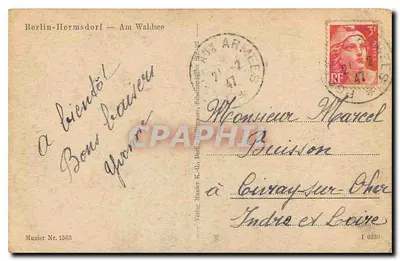 Berlin-Hermsdorf — Am Waldsee
AUX ARMÉES
2 -2
47
3F
RF
A bientôt
Bons baisers
Yvonne
Monsieur Marcel
Buisson
à Civray-sur-Cher
Indre et Loire
CARTE-POSTALE
Musier Nr. 1563